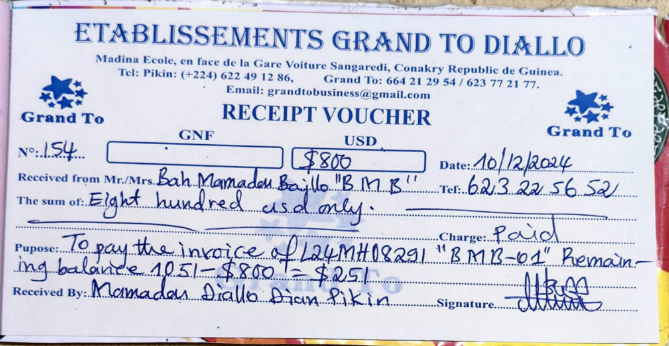 ETABLISSEMENTS GRAND TO DIALLO
Madina Ecole, en face de la Gare Voiture Sangaredi, Conakry Republic de Guinea.
Tel: Pikin: (+224) 622 49 12 86, Grand To: 664 21 29 54 / 623 77 21 77.
Email: grandtobusiness@gmail.com
Grand To
RECEIPT VOUCHER
Grand To
GNF USD
N°: 154 $800 Date: 10/12/2024
Received from Mr./Mrs. Bah Mamadou Bajllo "B M B" Tel: 623 22 56 52
The sum of: Eight hundred usd only.
Charge: Paid
Pupose: To pay the invoice of L24MH08291 "BMB-01" Remain-
ing balance 1051-$800 = $251
Received By: Mamadou Diallo Dian Pikin Signature